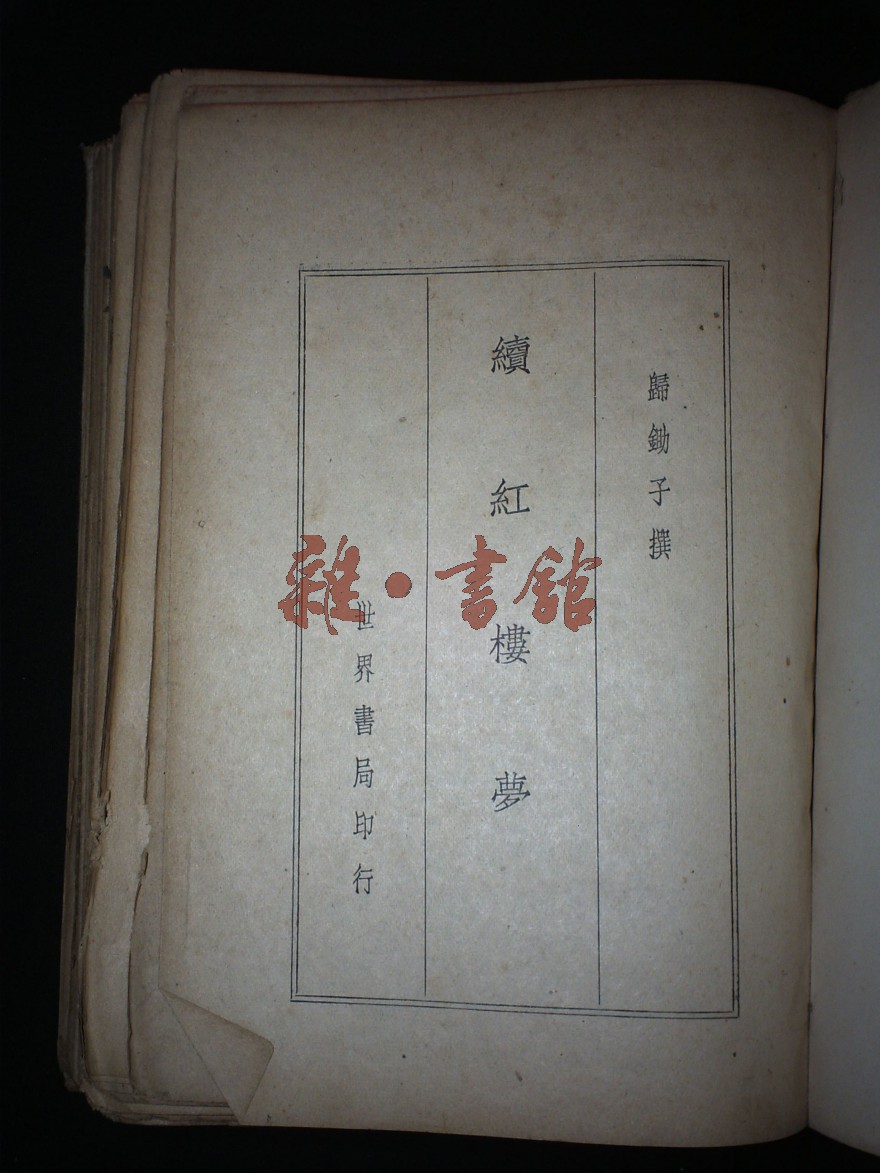 歸鋤子撰
續紅樓夢
世界書局印行
雜·書館